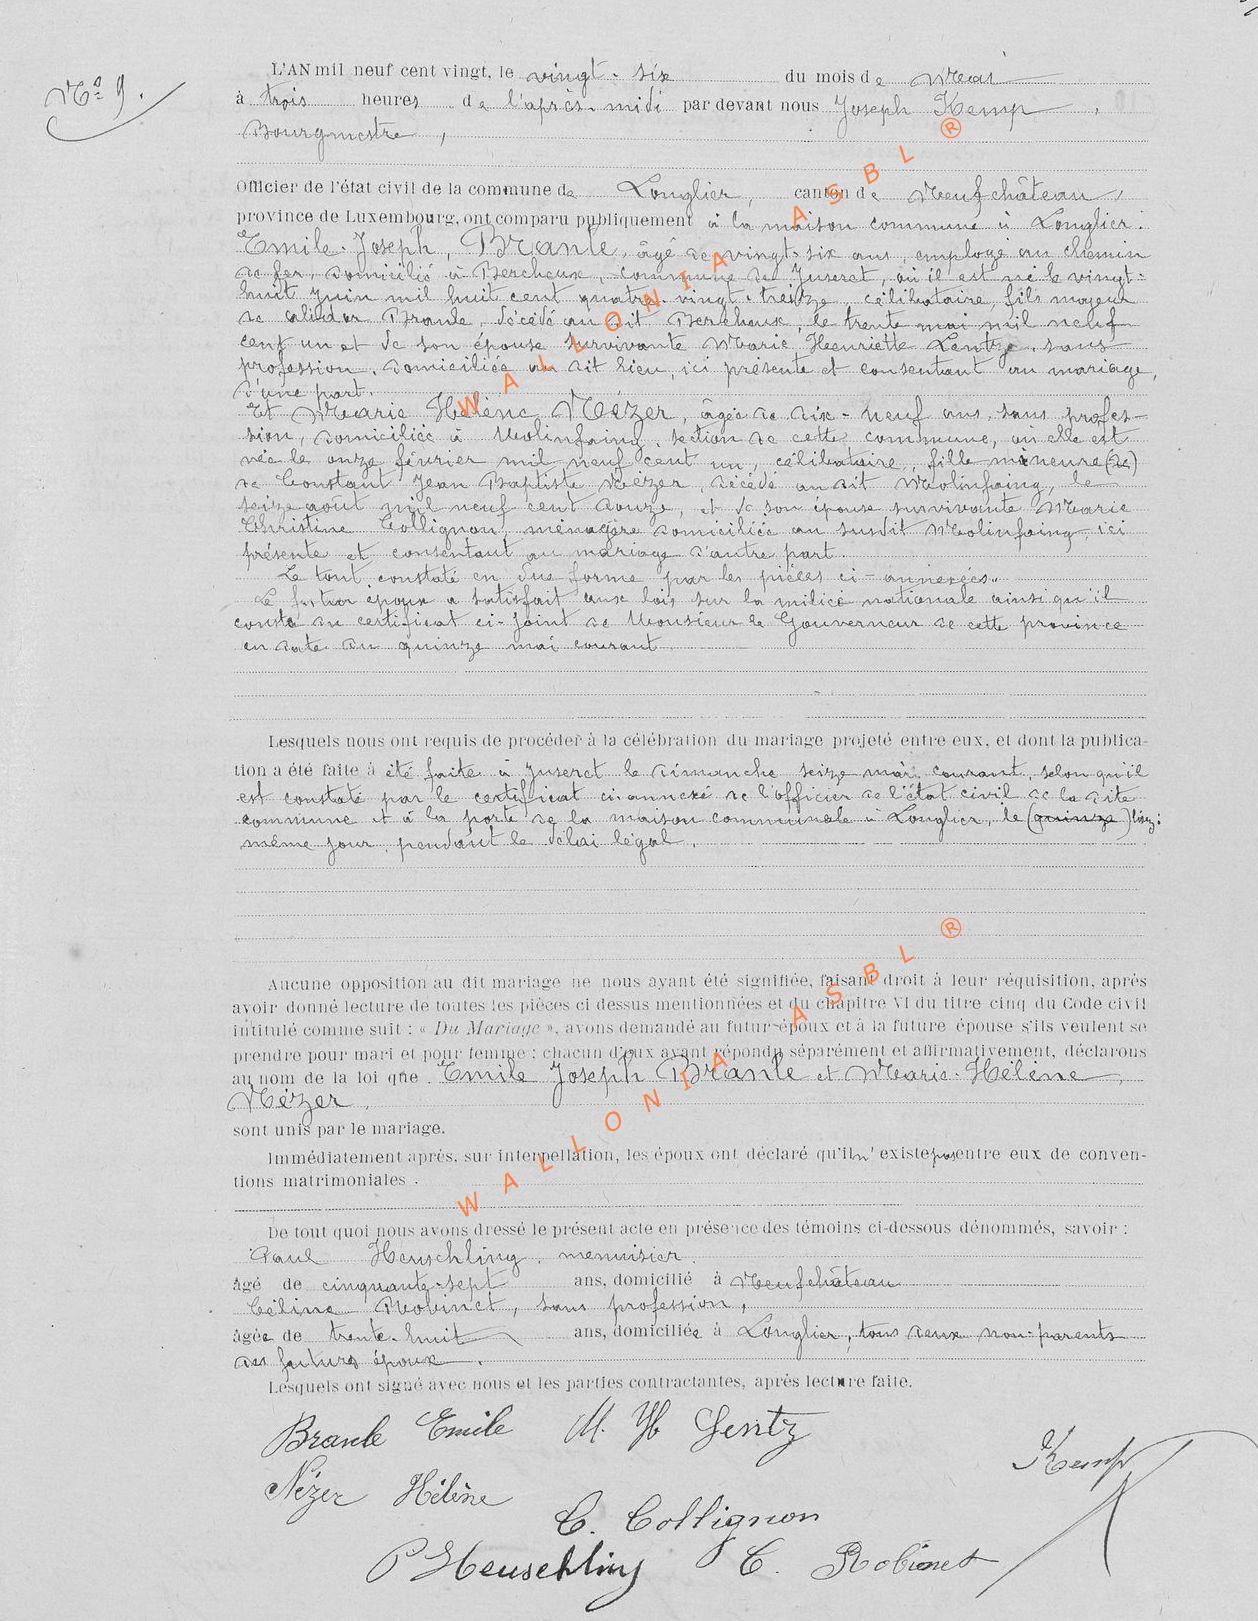 No 9.
L'AN mil neuf cent vingt, le vingt-six du mois de Mai
à trois heures de l'après-midi par devant nous Joseph Kemp,
Bourgmestre,
Officier de l'état civil de la commune de Longlier, canton de Neufchâteau,
province de Luxembourg, ont comparu publiquement à la maison commune à Longlier:
Emile-Joseph, Branle, âgé de vingt-six ans, employé au chemin
de fer, domicilié à Bercheux, commune de Juseret, où il est né le vingt-
huit juin mil huit cent quatre-vingt-treize, célibataire, fils majeur
de Branle, décédé au dit Bercheux, le trente mai mil neuf
cent un et de son épouse survivante Marie Henriette Lentz, sans
profession, domiciliée au dit lieu, ici présente et consentant au mariage,
d'une part.
Et Marie Hélène Nézer, âgée de dix-neuf ans, sans profes-
sion, domiciliée à Molinfaing, section de cette commune, où elle est
née le onze février mil neuf cent un, célibataire, fille mineure (de)
de Constant Jean Baptiste Nézer, décédé au dit Molinfaing, le
seize août mil neuf cent douze, et de son épouse survivante Marie
Christine Collignon, ménagère domiciliée au susdit Molinfaing, ici
présente et consentant au mariage d'autre part.
Le tout constaté en due forme par les pièces ci-annexées.
Le futur époux a satisfait aux lois sur la milice nationale ainsi qu'il
conste du certificat ci-joint de Monsieur le Gouverneur de cette province
en date du quinze mai courant.
Lesquels nous ont requis de procéder à la célébration du mariage projeté entre eux, et dont la publica-
tion a été faite à été faite à Juseret le dimanche seize mai courant, selon qu'il
est constaté par le certificat ci-annexé de l'officier de l'état civil de la dite
commune et à la porte de la maison communale à Longlier, le (quinze) lisez:
même jour, pendant le délai légal.
Aucune opposition au dit mariage ne nous ayant été signifiée, faisant droit à leur réquisition, après
avoir donné lecture de toutes les pièces ci dessus mentionnées et du chapitre VI du titre cinq du Code civil
intitulé comme suit : « Du Mariage », avons demandé au futur époux et à la future épouse s'ils veulent se
prendre pour mari et pour femme : chacun d'eux ayant répondu séparément et affirmativement, déclarons
au nom de la loi que Emile Joseph Branle et Marie-Hélène
Nézer,
sont unis par le mariage.
Immédiatement après, sur interpellation, les époux ont déclaré qu'il n'existe pas entre eux de conven-
tions matrimoniales.
De tout quoi nous avons dressé le présent acte en présence des témoins ci-dessous dénommés, savoir :
Paul Heuschling, menuisier,
âgé de cinquante-sept ans, domicilié à Neufchâteau
Céline Robinet, sans profession,
âgée de trente-huit ans, domiciliée à Longlier, tous deux non-parents
des futurs époux.
Lesquels ont signé avec nous et les parties contractantes, après lecture faite.
Branle Emile M. H Lentz
Kemp
Nézer Hélène
C. Collignon
P Heuschling C. Robinet
WALLONIA ASBL ®
WALLONIA ASBL ®